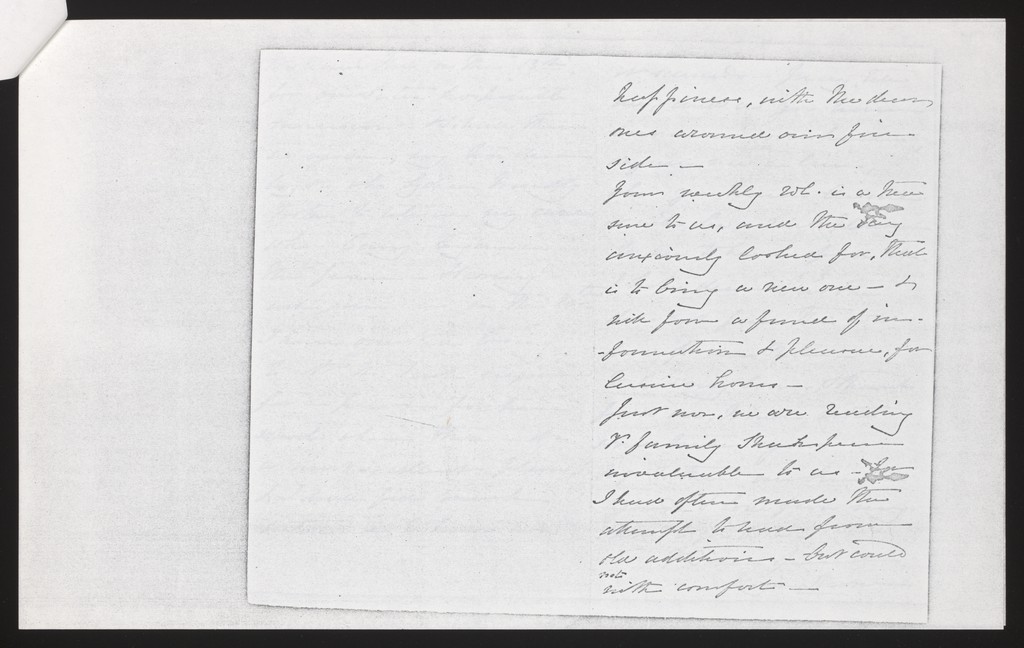 happiness, with the dear
ones around our fire-
side —
Your weekly Vol. is a trea
sure to us, and the day
anxiously looked for, that
is to bring a new one — &
with from a fund of in-
-formation & pleasure, for
leisure hours —
Just now, we are reading
Yr. family Shakspeare
invaluable to us —
I had often made the
attempt to read from
old additions — but could
not
with comfort —